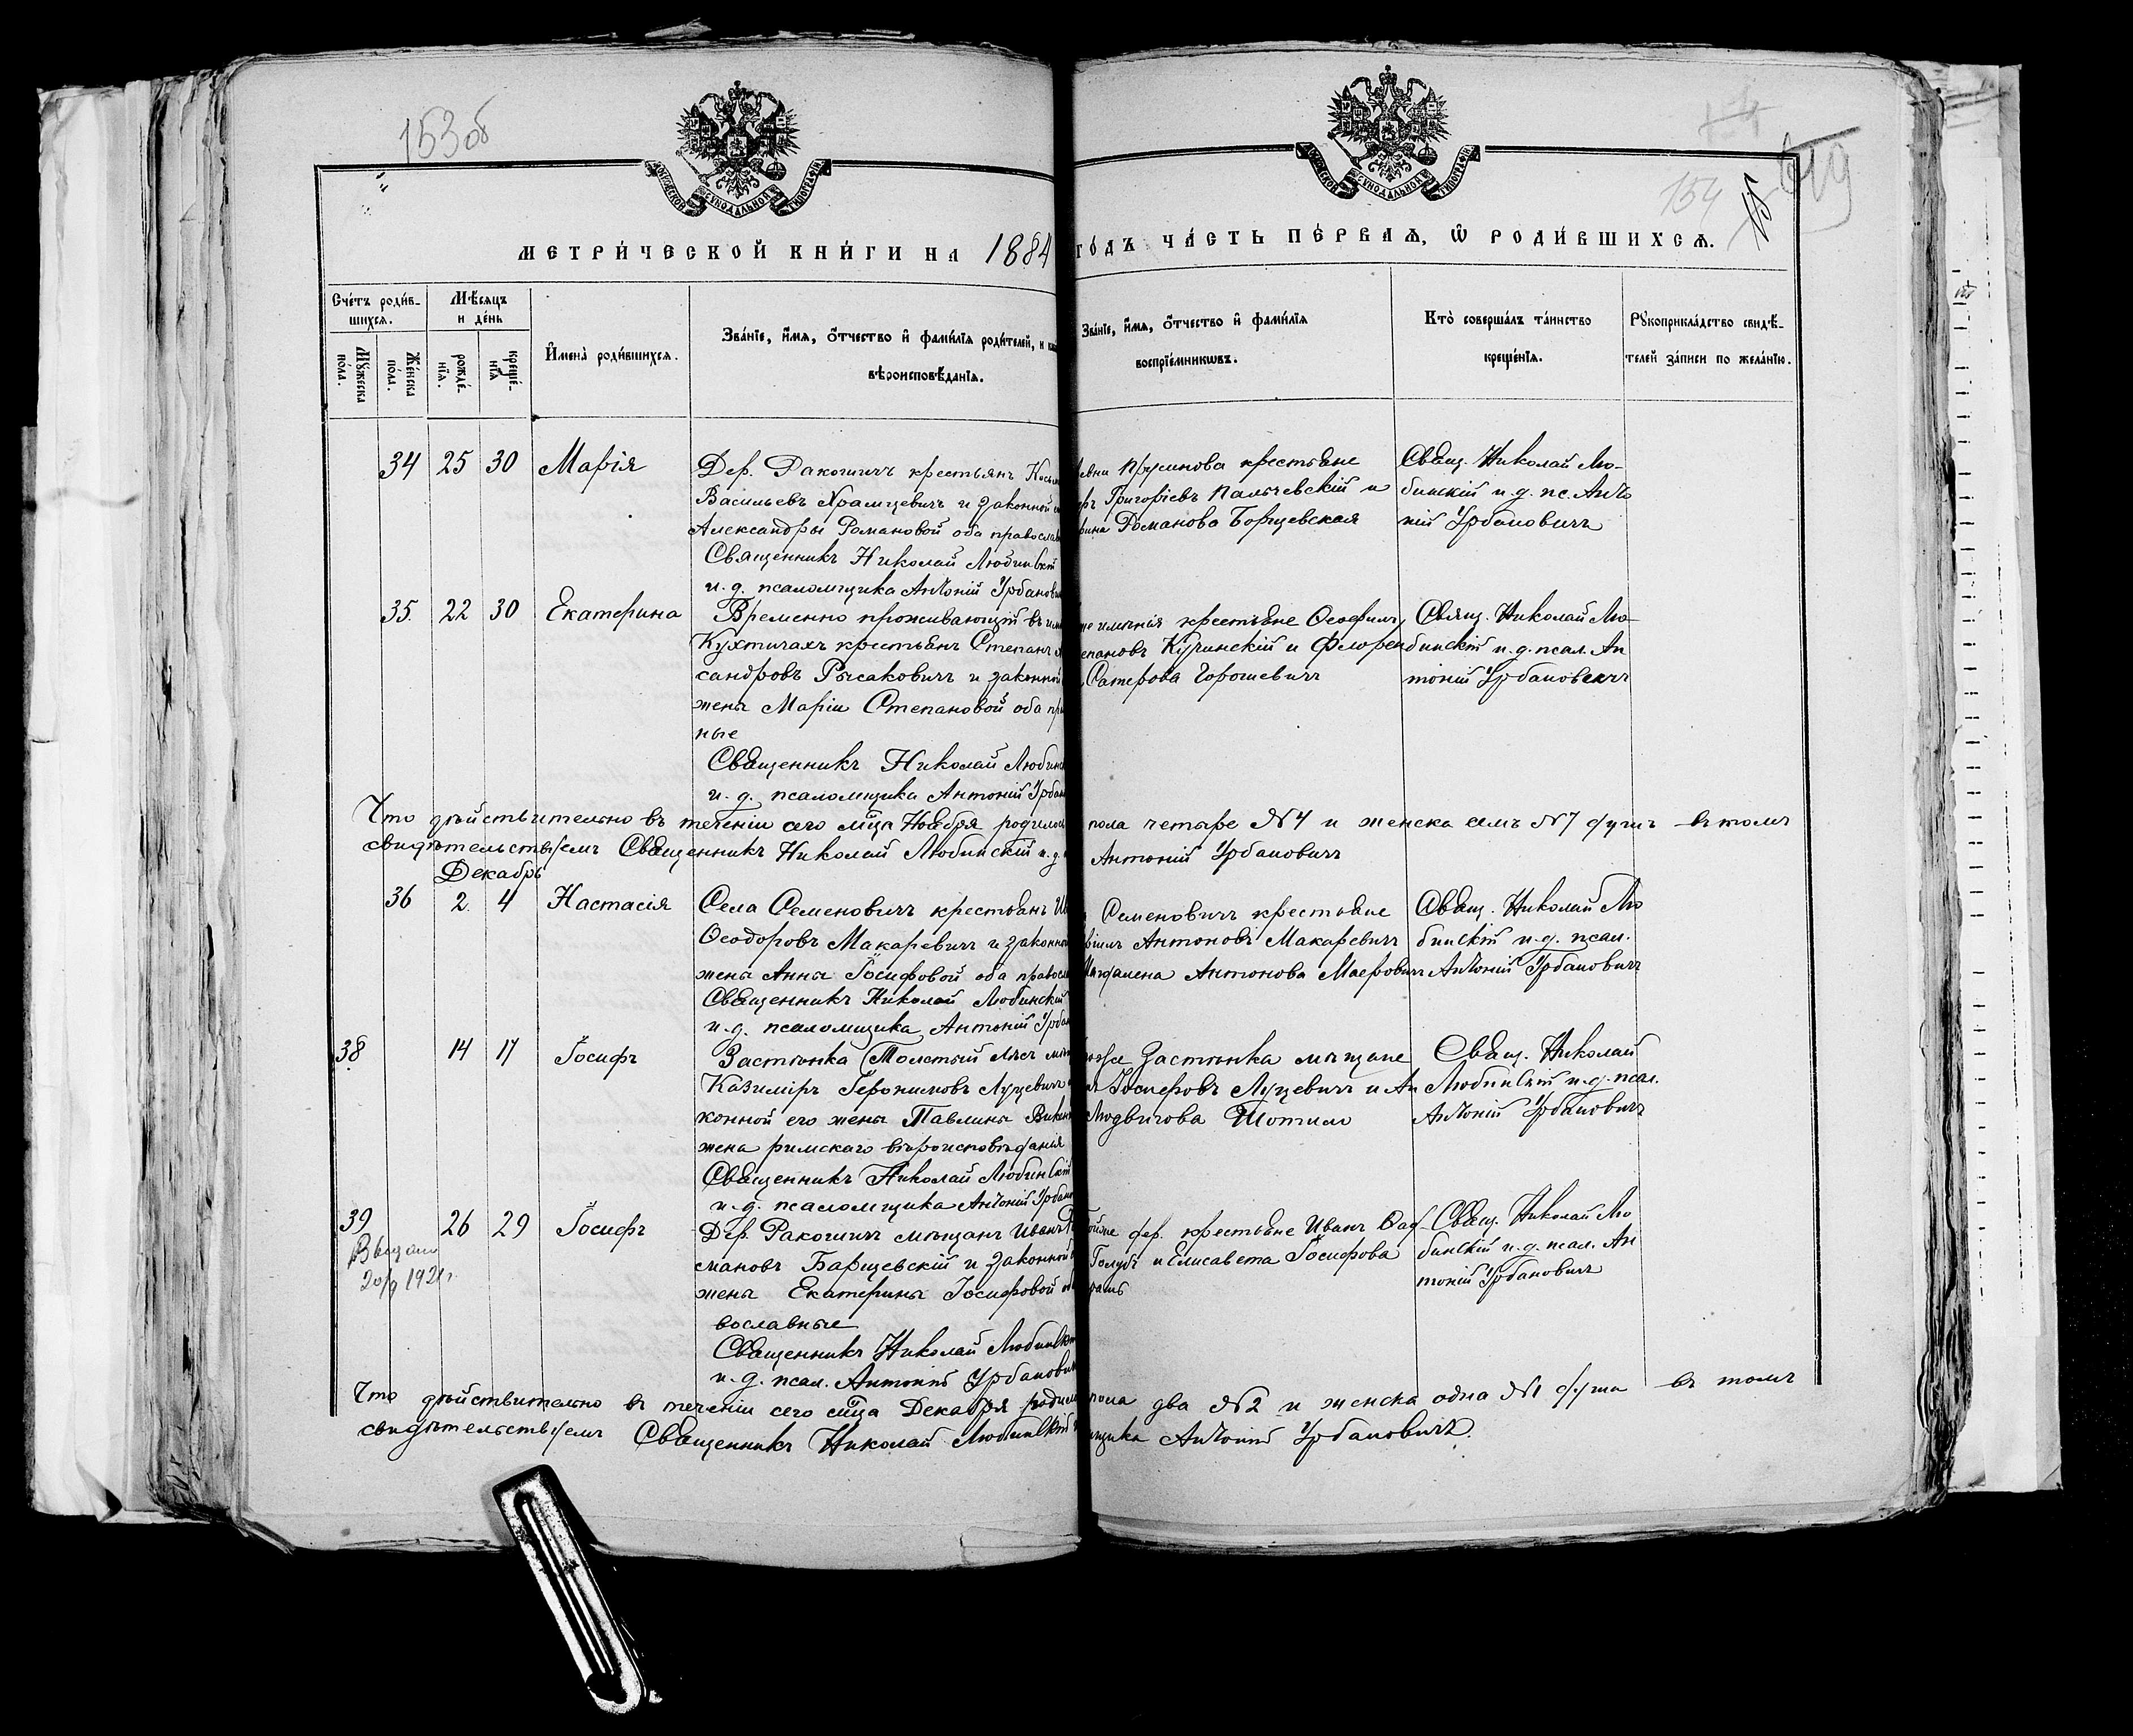 153 об
154
149
МОСКОВСКОЙ СѴНОДАЛЬНОЙ ТИПОГРАФІИ
МОСКОВСКОЙ СѴНОДАЛЬНОЙ ТИПОГРАФІИ
МЕТРИ́ЧЕСКОЙ КНИ́ГИ НА 1884
ГО́ДЪ ЧА́СТЬ ПЕ́РВАѦ, Ѡ҆ РОДИ́ВШИХСѦ.
Сче́тъ роди́в-
шихсѧ.
Мѣ́сѧцъ
и де́нь
Мꙋ́жеска
пола.
Же́нска
по́ла.
рожде́-
нїѧ.
креще́-
нїѧ
И҆мена̀ роди́вшихсѧ.
Зва́нїе, и҆́мѧ, ѻ҆́тчество и҆ фами́лїѧ роди́телей, и
вѣроисповѣ́данїѧ.
Зва́нїе, и҆́мѧ, ѻ҆́тчество и҆ фами́лїѧ
воспрїе́мникѡвъ.
Кто̀ соверша́лъ та́инство
креще́нїѧ.
Рꙋкоприкла́дство свидѣ́-
телей за́писи по жела́нїю.
34 25 30 Марія
Дер. Ракошичъ крестьянъ
Васильевъ Храмцевичъ и законной
Александры Романовой оба
Священникъ Николай Любинскій
и. д. псаломщика Антоній
Прусинова крестьяне
Григоріевъ Пальчевскій и
Романова Борщевская
Свящ. Николай Лю-
бинскій и.д. пс. Анто
ній Урбановичъ
35. 22 30 Екатерина
Временно проживающій въ
Кухтичахъ крестьянъ Степанъ
сандровъ Рысаковичъ и законной
жены Маріи Степановой оба
ные
Священникъ Николай
и. д. псаломщика Антоній
имѣнія крестьяне Ѳеофилъ
Кучинскій и Флорен
Горошевичъ
Свящ. Николай Лю-
бинскій и.д. псал. Ан
тоній Урбановичъ
Что дѣйствительно въ теченіи сего мѣца Ноября
пола четыре № 4 и женска семь № 7 душъ въ томъ
свидѣтельствуемъ Священникъ Николай Любинскій и. д.
Антоній Урбановичъ
Декабрь
36 2. 4 Настасія
Села Семеновичъ крестьянъ
Ѳеодоровъ Макаревичъ и законной
жены Анны Іосифовой оба
Священникъ Николай Любинскій
и. д. псаломщика Антоній
Семеновичъ крестьяне
Антоновъ Макаревичъ
Антонова Маерович
Свящ. Николай Лю
бинскій и.д. псал.
Антоній Урбановичъ
38 14 17 Іосифъ
Застѣнка Толстый Лѣсъ
Казиміръ Іеронимовъ Луцевичъ
конной его жены Павлины
жена римскаго вѣроисповѣданія
Священникъ Николай Любинскій
и. д. псаломщика Антоній
Застѣнка мѣщане
Луцевичъ и Ан
Людвигова Шотило
Свящ. Николай
Любинскій и.д. псал.
Антоній Урбановичъ
39 26 29 Іосифъ
Выдано
20/9 1921г.
Дер. Ракошичъ мѣщанъ Иванъ
смановъ Барщевскій и законной
жены Екатерины Іосифовой
вославные
Священникъ Николай Любинскій
и. д. псал. Антоній Урбановичъ
дер. крестьяне Иванъ
Голубъ и Елисавета Іосифова
Свящ. Николай Лю
бинскій и.д. псал. Ан
тоній Урбановичъ
Что дѣйствительно въ теченіи сего мѣца Декабря
пола два № 2 и женска одна № 1 душа въ томъ
свидѣтельствуемъ Священникъ Николай Любинскій
Антоній Урбановичъ.